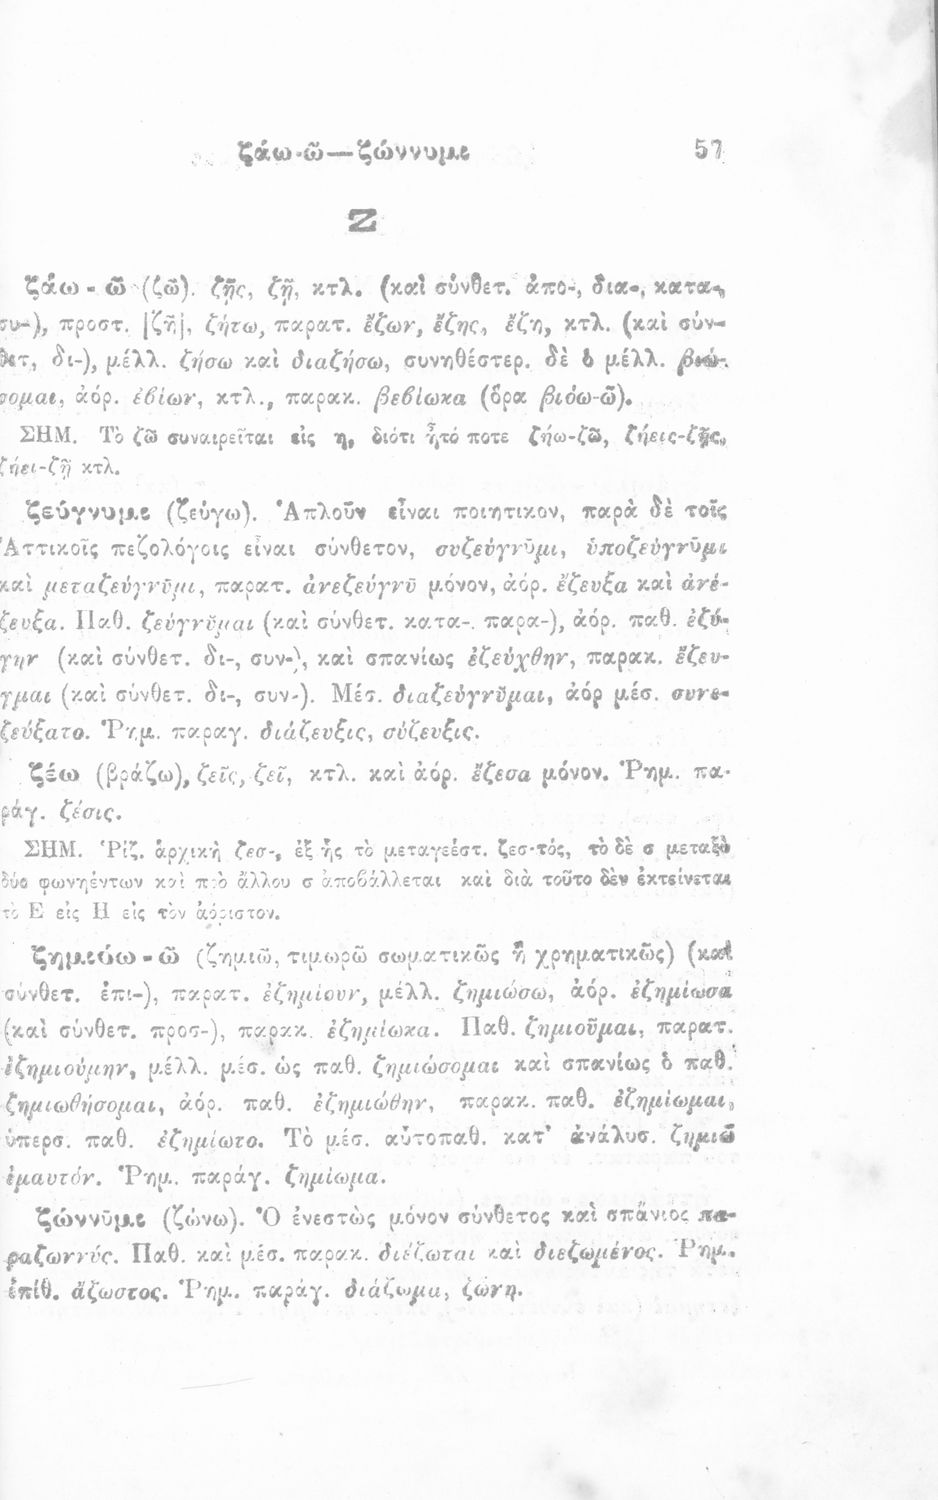 ζάω-ῶ—ζώννυμι 57
Ζ
ζάω-ῶ (ζῶ). ζῇς, ζῇ, κτλ. (καὶ σύνθετ. ἀπο-, δια-, κατα-,
συ-), προστ. [ζῆ], ζήτω, παρατ. ἔζων, ἔζης, ἔζη, κτλ. (καὶ σύν-
θετ, δι-), μέλλ. ζήσω καὶ διαζήσω, συνηθέστερ. δὲ ὁ μέλλ. βιώ-
σομαι, ἀόρ. ἐβίων, κτλ., παρακ. βεβίωκα (ὅρα βιόω-ῶ).
ΣΗΜ. Τὸ ζῶ συναιρεῖται εἰς η, διότι ἦτό ποτε ζήω-ζῶ, ζήεις-ζῇς,
ζήει-ζῇ κτλ.
ζεύγνυμι (ζεύγω). Ἁπλοῦν εἶναι ποιητικον, παρὰ δὲ τοῖς
Ἀττικοῖς πεζολόγοις εἶναι σύνθετον, συζεύγνῡμι, ὑποζεύγνῡμι
καὶ μεταζεύγνῡμι, παρατ. ἀνεζεύγνῡ μόνον, ἀόρ. ἔζευξα καὶ ἀνέ-
ζευξα. Παθ. ζεύγνῠμαι (καὶ σύνθετ. κατα-. παρα-), ἀόρ. παθ. ἐζύ-
γην (καὶ σύνθετ. δι-, συν-), καὶ σπανίως ἐζεύχθην, παρακ. ἔζευ-
γμαι (καὶ σύνθετ. δι-, συν-). Μέσ. διαζεύγνῠμαι, ἀόρ μέσ. συνε-
ζεύξατο. Ῥημ. παραγ. διάζευξις, σύζευξις.
ζέω (βράζω), ζεῖς, ζεῖ, κτλ. καὶ ἀόρ. ἔζεσα μόνον. Ῥημ. πα-
ράγ. ζέσις.
ΣΗΜ. Ῥίζ. ἀρχικὴ ζεσ-, ἐξ ἧς τὸ μεταγεέστ. ζεσ-τός, τὸ δὲ σ μεταξὺ
δύο φωνηέντων καὶ πρὸ ἄλλου σ ἀποβάλλεται καὶ διὰ τοῦτο δὲν ἐκτείνεται
τὸ Ε εἰς Η εἰς τὸν ἀόριστον.
ζημιόω-ῶ (ζημιῶ, τιμωρῶ σωματικῶς ἢ χρηματικῶς) (καὶ
σύνθετ. ἐπι-), παρατ. ἐζημίουν, μέλλ. ζημιώσω, ἀόρ. ἐζημίωσα
(καὶ σύνθετ. προσ-), παρακ. ἐζημίωκα. Παθ. ζημιοῦμαι, παρατ.
ἐζημιούμην, μέλλ. μέσ. ὡς παθ. ζημιώσομαι καὶ σπανίως ὁ παθ.
ζημιωθήσομαι, ἀόρ. παθ. ἐζημιώθην, παρακ. παθ. ἐζημίωμαι,
ὑπερσ. παθ. ἐζημίωτο. Τὸ μέσ. αὐτοπαθ. κατ' ἀνάλυσ. ζημιῶ
ἐμαυτόν. Ῥημ. παράγ. ζημίωμα.
ζώννῡμι (ζώνω). Ὁ ἐνεστὼς μόνον σύνθετος καὶ σπάνιος πα-
ραζωννύς. Παθ. καὶ μέσ. παρακ. διέζωται καὶ διεζωμένος. Ῥημ.
ἐπίθ. ἄζωστος. Ῥημ. παράγ. διάζωμα, ζώνη.